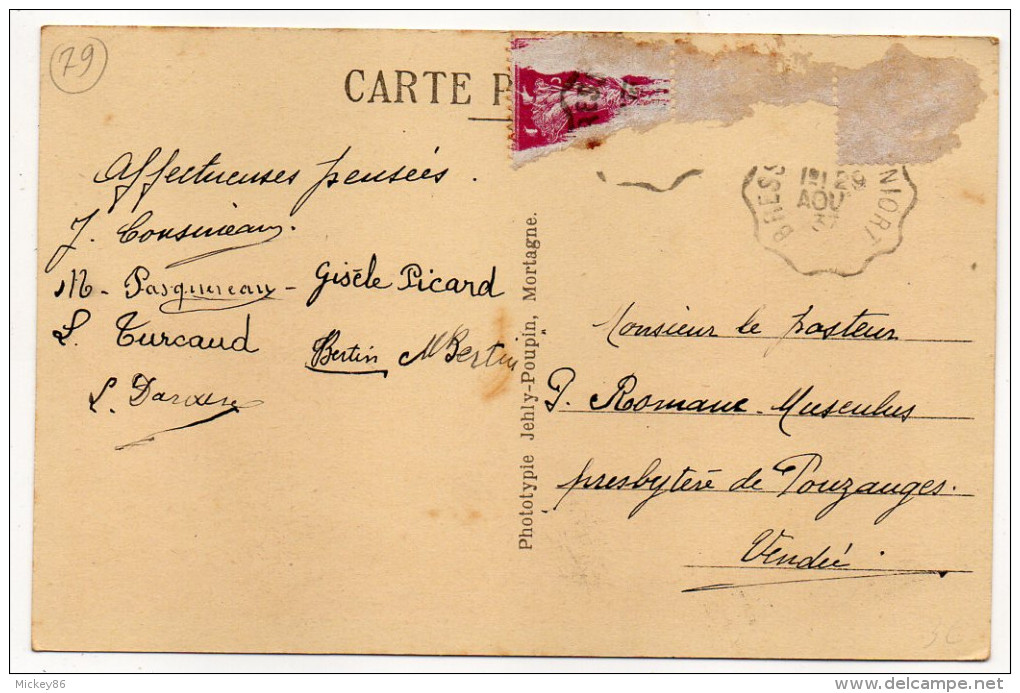 79
CARTE P
RESS
BRESS NIORT
1ᴱ 29
AOU
37
Affectueuses pensées.
J. Cousineau.
M. Pasquereau - Gisèle Picard
L. Turcaud
Bertin M Bertin
L.
Phototypie Jehly-Poupin, Mortagne.
Monsieur le pasteur
P. Romane-Musculus
presbytère de Pouzauges.
Vendée
5€
Mickey86
delcampe.net